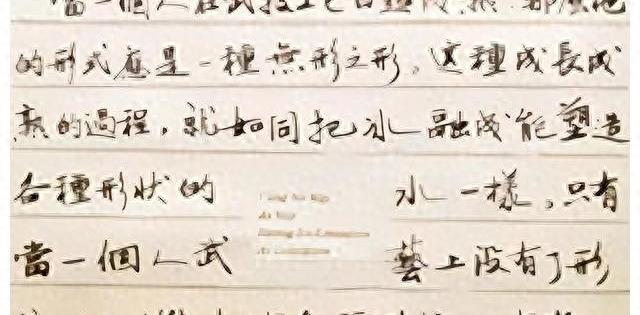 當一個人在武技上
的形式應是一種無形之形。這種成長成
熟的過程，就如同把冰融成能塑造
各種形狀的 水一樣，只有
當一個人武 藝上沒有了形